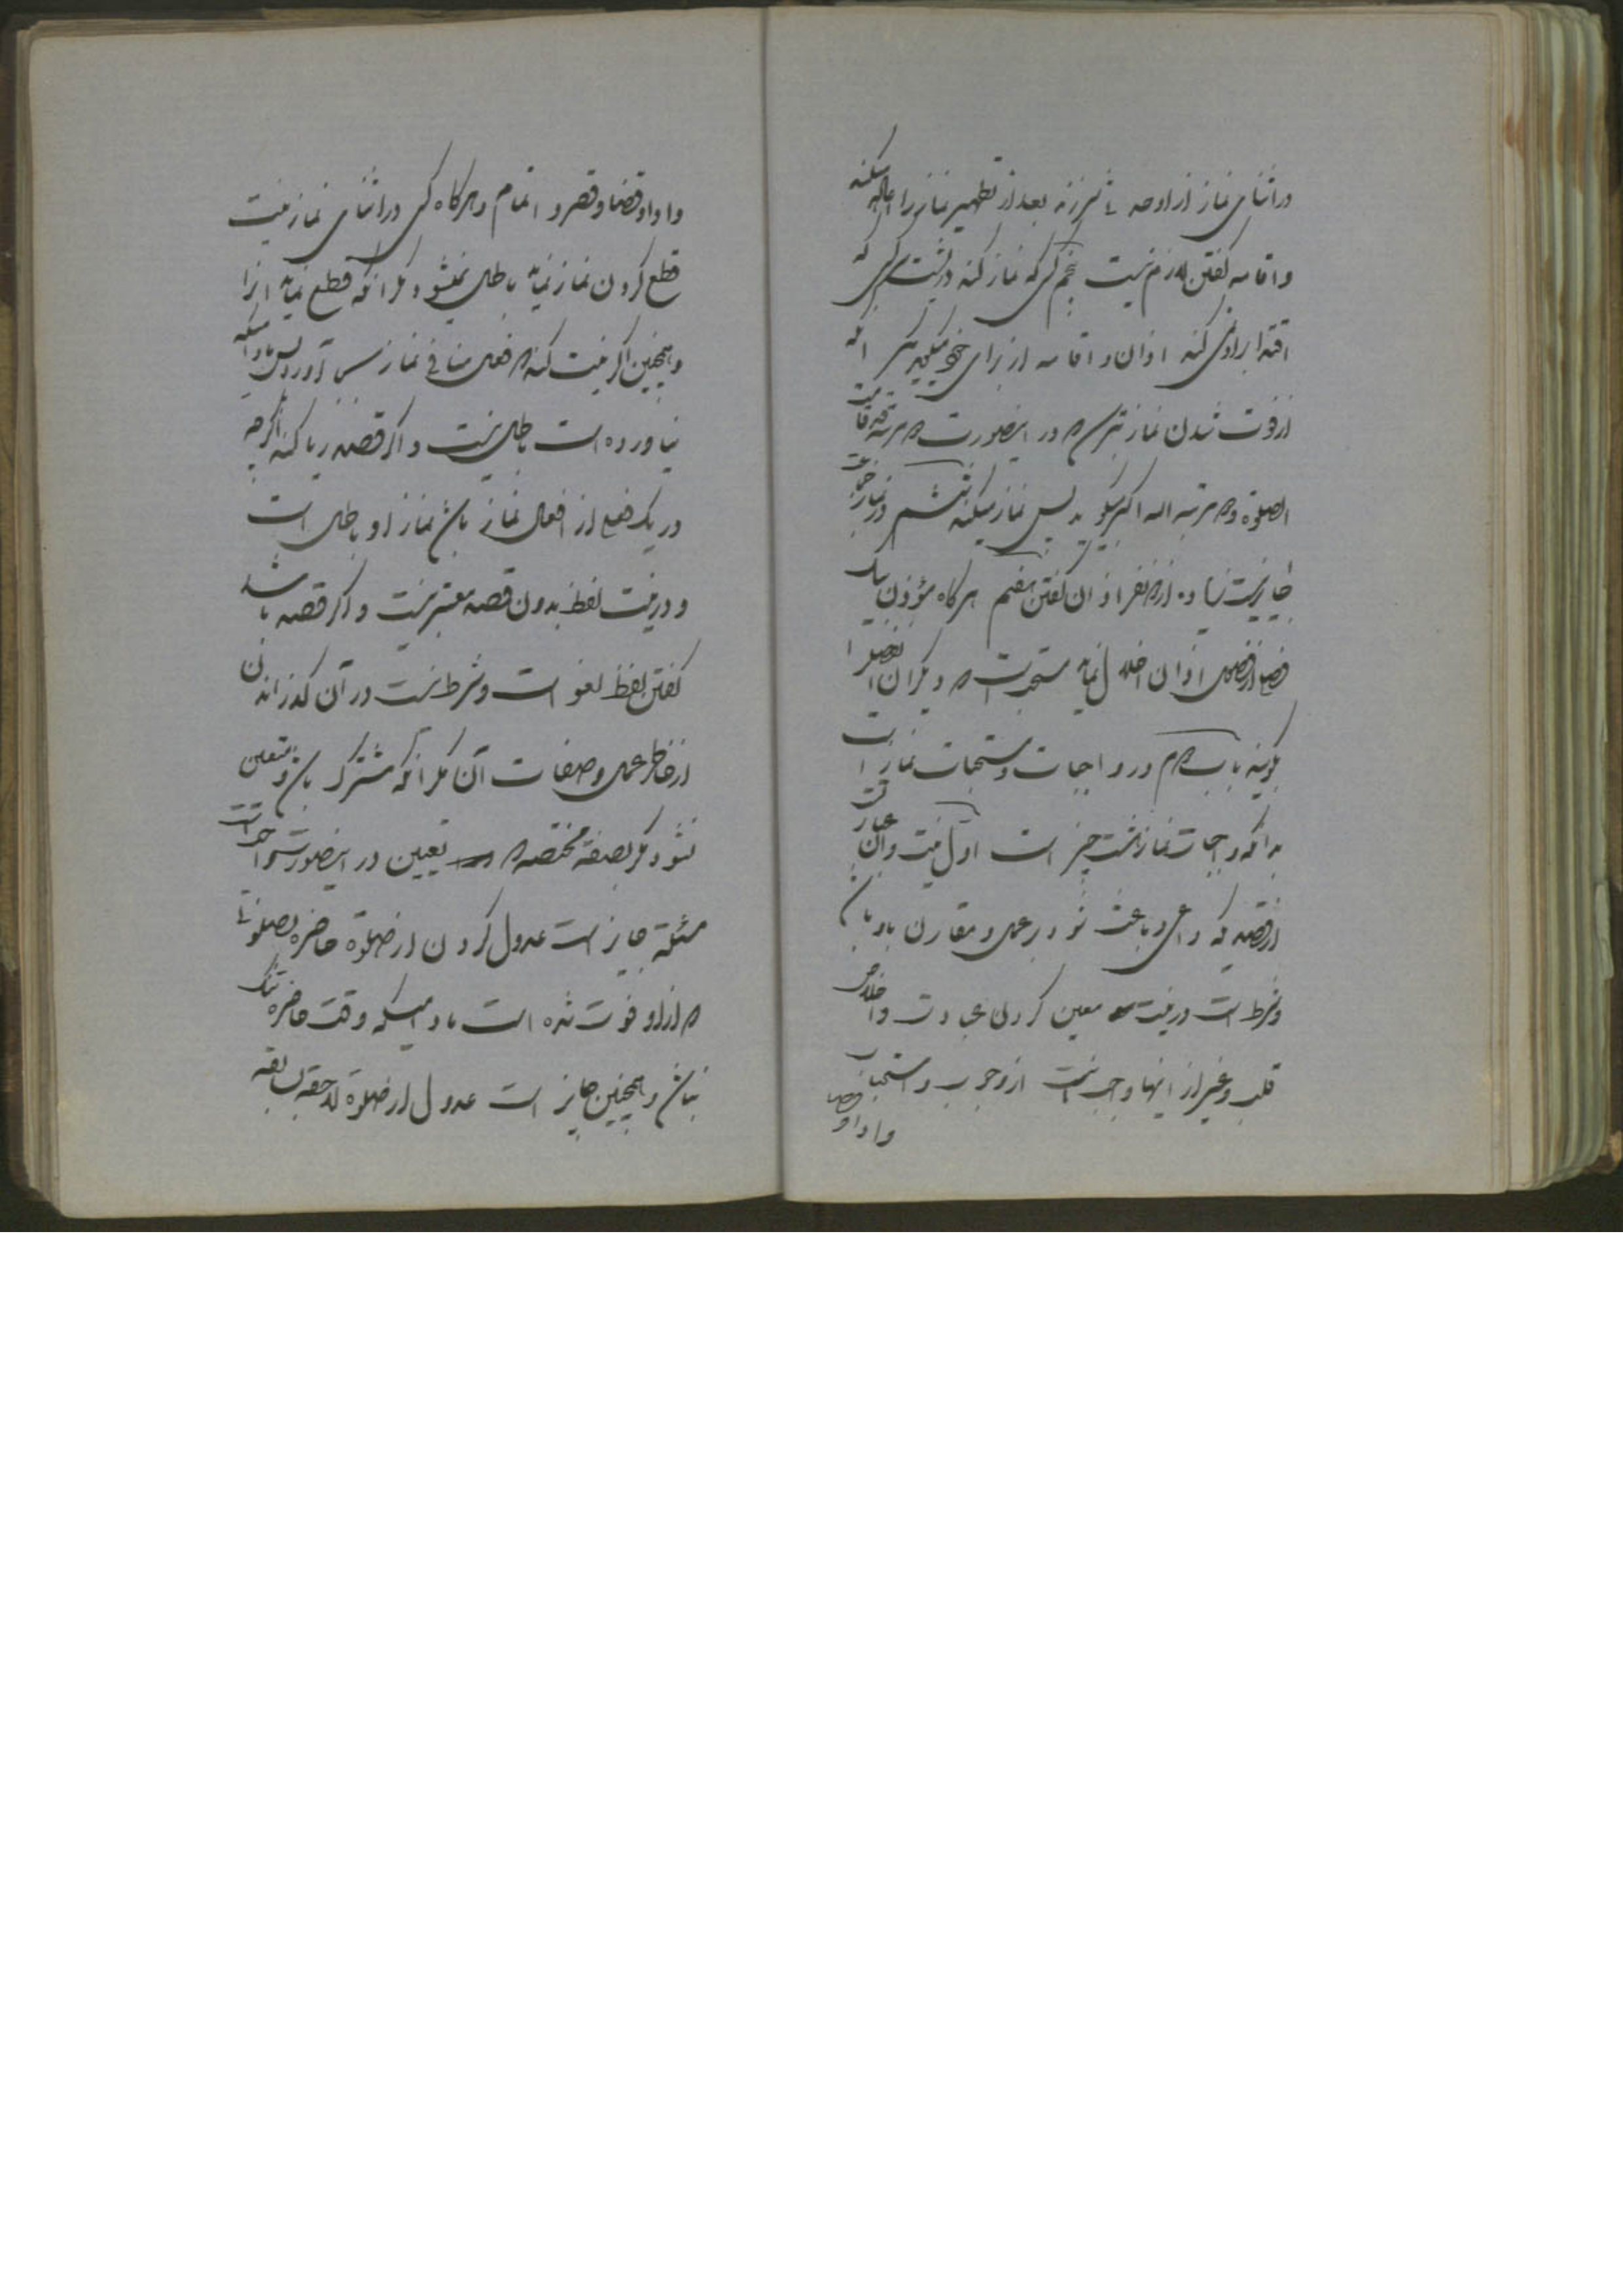 در اثنای نماز از او حدثی سر زند بعد از تطهیر نماز را اعاده میکند
و اقامه گفتن لازم نیست پنجم کسی که نماز کند در پشت کسی که
اقتدا براو نمی کند اذان و اقامه از برای خود میگوید مگر آنکه
از فوت شدن نماز بترسد که در اینصورت دو مرتبه قد قامت
الصلوة و دو مرتبه الله اکبر میگوید پس نماز میکند ششم در نماز جماعت
جایز نیست زیاده از دو نفر اذان گفتن هفتم هرگاه مؤذن بیک
فصل از فصول اذان اخلال نماید مستحب است که دیگران آن فصل را
بگویند باب دوم در واجبات و مستحبات نماز است
بدانکه واجبات نماز هشت چیز است اول نیت و آن عبارتست
از قصدی که داعی و باعث شود بر عمل و مقارن باو باشد
و شرط است در نیت معین کردن عبادت و اخلاص
قلب و غیر از اینها واجب نیست از وجوب و استحباب
و ادا و قضا
و ادا و قضا و قصر و اتمام و هرگاه کسی در اثنای نماز نیت
قطع کردن نماز نماید باطل نمیشود مگر آنکه قطع نماید آنرا
و همچنین اگر نیت کند که فعل منافی نماز آورد پس مادامیکه
نیاورده است باطل نیست و اگر قصد ریا کند اگرچه
در یک فعل از افعال نماز باشد نماز او باطل است
و در نیت لفظ بدون قصد معتبر نیست و اگر قصد باشد
گفتن لفظ لغو است و شرط نیست در آن گذرانیدن
از خاطر عمل و صفات آن مگر آنکه مشترک باشد و متعین
نشود مگر بصفة مختصه که تعیین در اینصورت واجبست
مسئلة جایز است عدول کردن از صلوة حاضره بصلوتی
که از او فوت شده است مادامیکه وقت حاضره تنگ
نباشد و همچنین جایز است عدول از صلوة لاحقه بسابقه